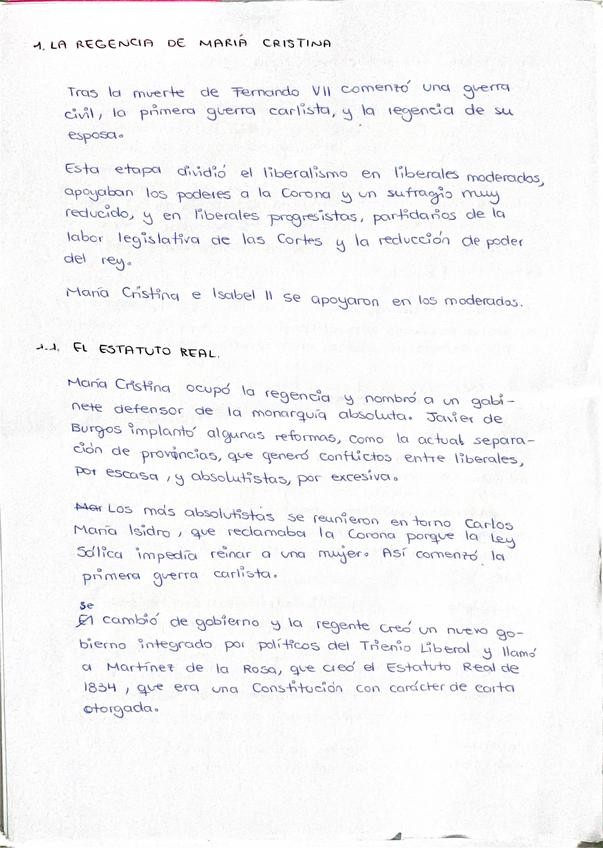 1. LA REGENCIA DE MARIÁ CRISTINA
Tras la muerte de Fernando VII comenzó una guerra
civil, la primera guerra carlista, y la regencia de su
esposa.
Esta etapa dividió el liberalismo en liberales moderados,
apoyaban los poderes a la Corona y un sufragio muy
reducido, y en liberales progresistas, partidarios de la
labor legislativa de las Cortes y la reducción de poder
del rey.
María Cristina e Isabel II se apoyaron en los moderados.
1.1. EL ESTATUTO REAL.
María Cristina ocupó la regencia y nombró a un gabi-
nete defensor de la monarquía absoluta. Javier de
Burgos implantó algunas reformas, como la actual separa-
ción de provincias, que generó conflictos entre liberales,
por escasa, y absolutistas, por excesiva.
Los más absolutistas se reunieron en torno Carlos
María Isidro, que reclamaba la Corona porque la Ley
Sálica impedía reinar a una mujer. Así comenzó la
primera guerra carlista.
Se
El cambió de gobierno y la regente creó un nuevo go-
bierno integrado por políticos del Trienio Liberal y llamó
a Martínez de la Rosa, que creó el Estatuto Real de
1834, que era una Constitución con carácter de carta
otorgada.